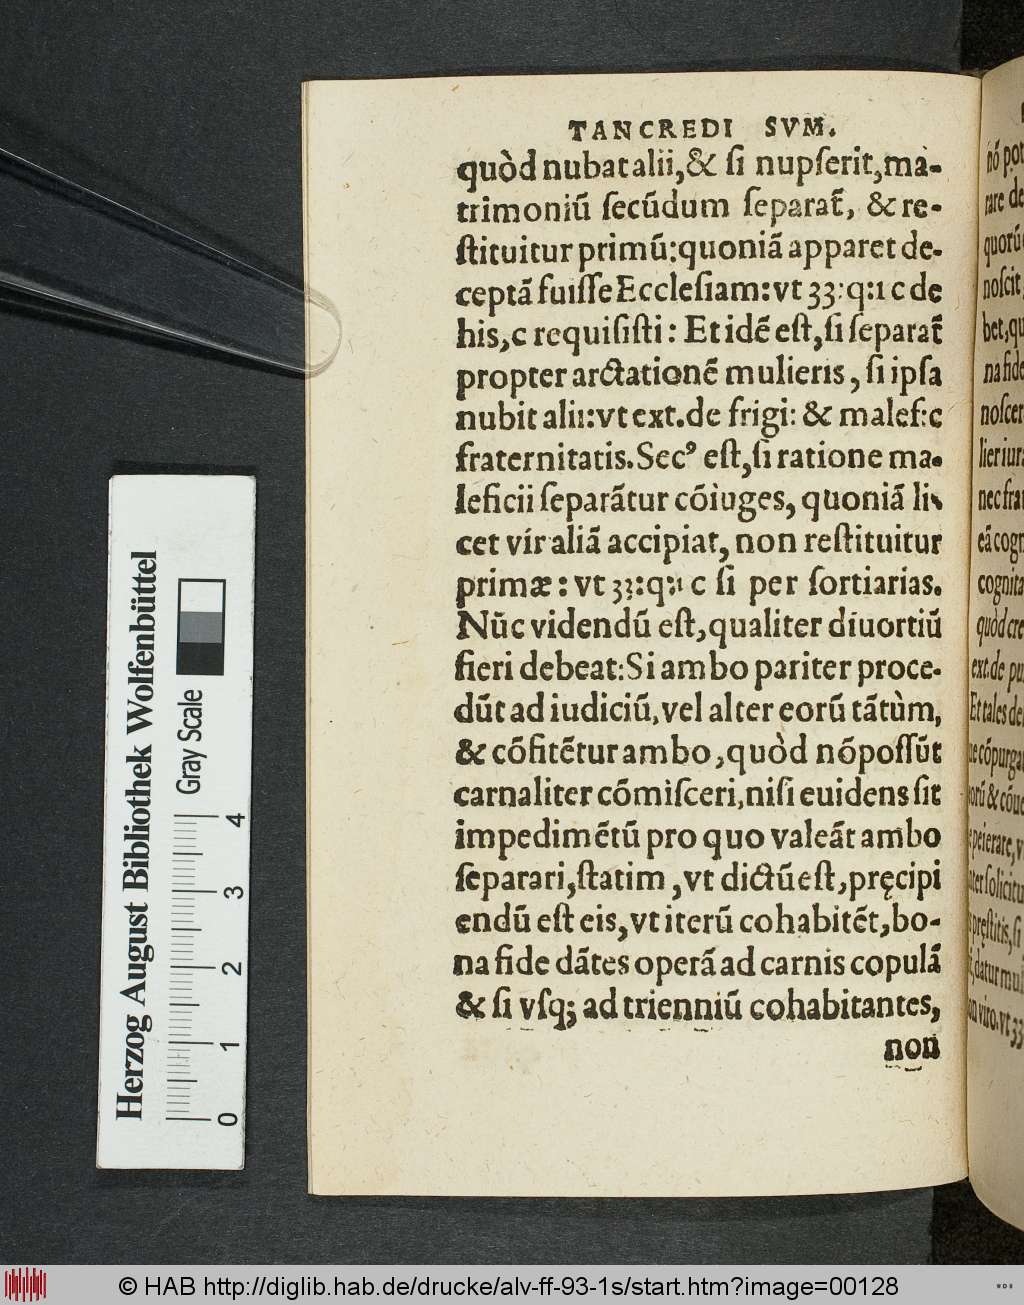 TANCREDI SVM.
quòd nubat alii, & ſi nupſerit, ma-
trimoniũ ſecũdum ſeparat̃, & re-
ſtituitur primũ: quoniã apparet de-
ceptã fuiſſe Eccleſiam: vt 33: q: 1 c de
his, c requiſiſti: Et idẽ eſt, ſi ſeparat̃
propter arctationẽ mulieris, ſi ipſa
nubit alii: vt ext. de frigi: & malef: c
fraternitatis. Secꝰ eſt, ſi ratione ma-
leficii ſeparãtur cõiuges, quoniã li-
cet vir aliã accipiat, non reſtituitur
primæ: vt 33: q: 1 c ſi per ſortiarias.
Nũc videndũ eſt, qualiter diuortiũ
fieri debeat: Si ambo pariter proce-
dũt ad iudiciũ, vel alter eorũ tãtùm,
& cõfitẽtur ambo, quòd nõ poſſũt
carnaliter cõmiſceri, niſi euidens ſit
impedimẽtũ pro quo valeãt ambo
ſeparari, ſtatim, vt dictũ eſt, pręcipi
endũ eſt eis, vt iterũ cohabitẽt, bo-
na fide dãtes operã ad carnis copulã
& ſi vſq; ad trienniũ cohabitantes,
non
nõ pot
rare de
quorũ
noſcit
bet, qu
na fide
noſcer
lier iura
nec frat
eã cogn
cognita
quòd cre
ext: de pu
Et tales de
cõpurgat
orũ & cõu
peierare, v
ter ſolicitu
pręſtitis, ſi
datur mul
viro. vt 33
Herzog August Bibliothek Wolfenbüttel
Gray Scale
0 1 2 3 4
© HAB http://diglib.hab.de/drucke/alv-ff-93-1s/start.htm?image=00128